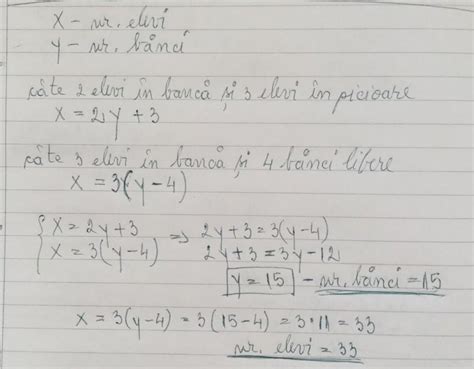 X - nr. elevi
y - nr. bănci
câte 2 elevi în bancă și 3 elevi în picioare
X = 2y + 3
câte 3 elevi în bancă și 4 bănci libere
X = 3(y-4)
{ X = 2y+3 => 2y+3 = 3(y-4)
X = 3(y-4) 2y+3 = 3y-12
y = 15 - nr. bănci = 15
X = 3(y-4) = 3(15-4) = 3·11 = 33
nr. elevi = 33